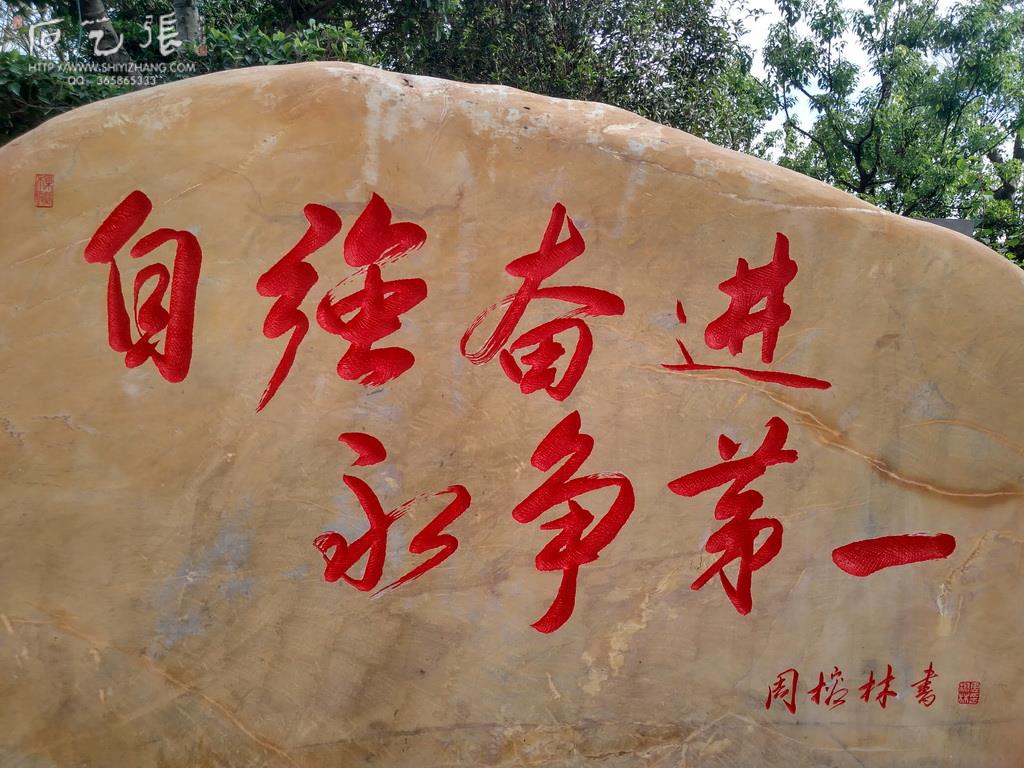 石艺張
HTTP://WWW.SHIYIZHANG.COM
QQ：365865333
自強奋进
永争第一
周榕林書